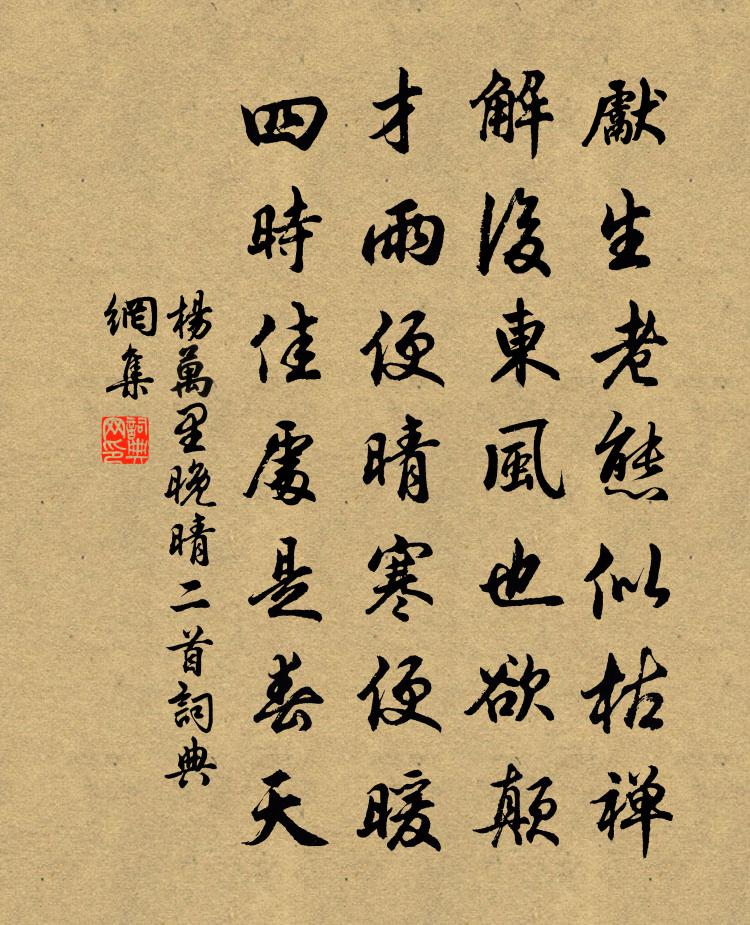 獻生老態似枯禅
解後東風也欲顛
才雨便晴寒便暖
四時佳處是春天
楊萬里晚晴二首詞典
網集
詞典网印